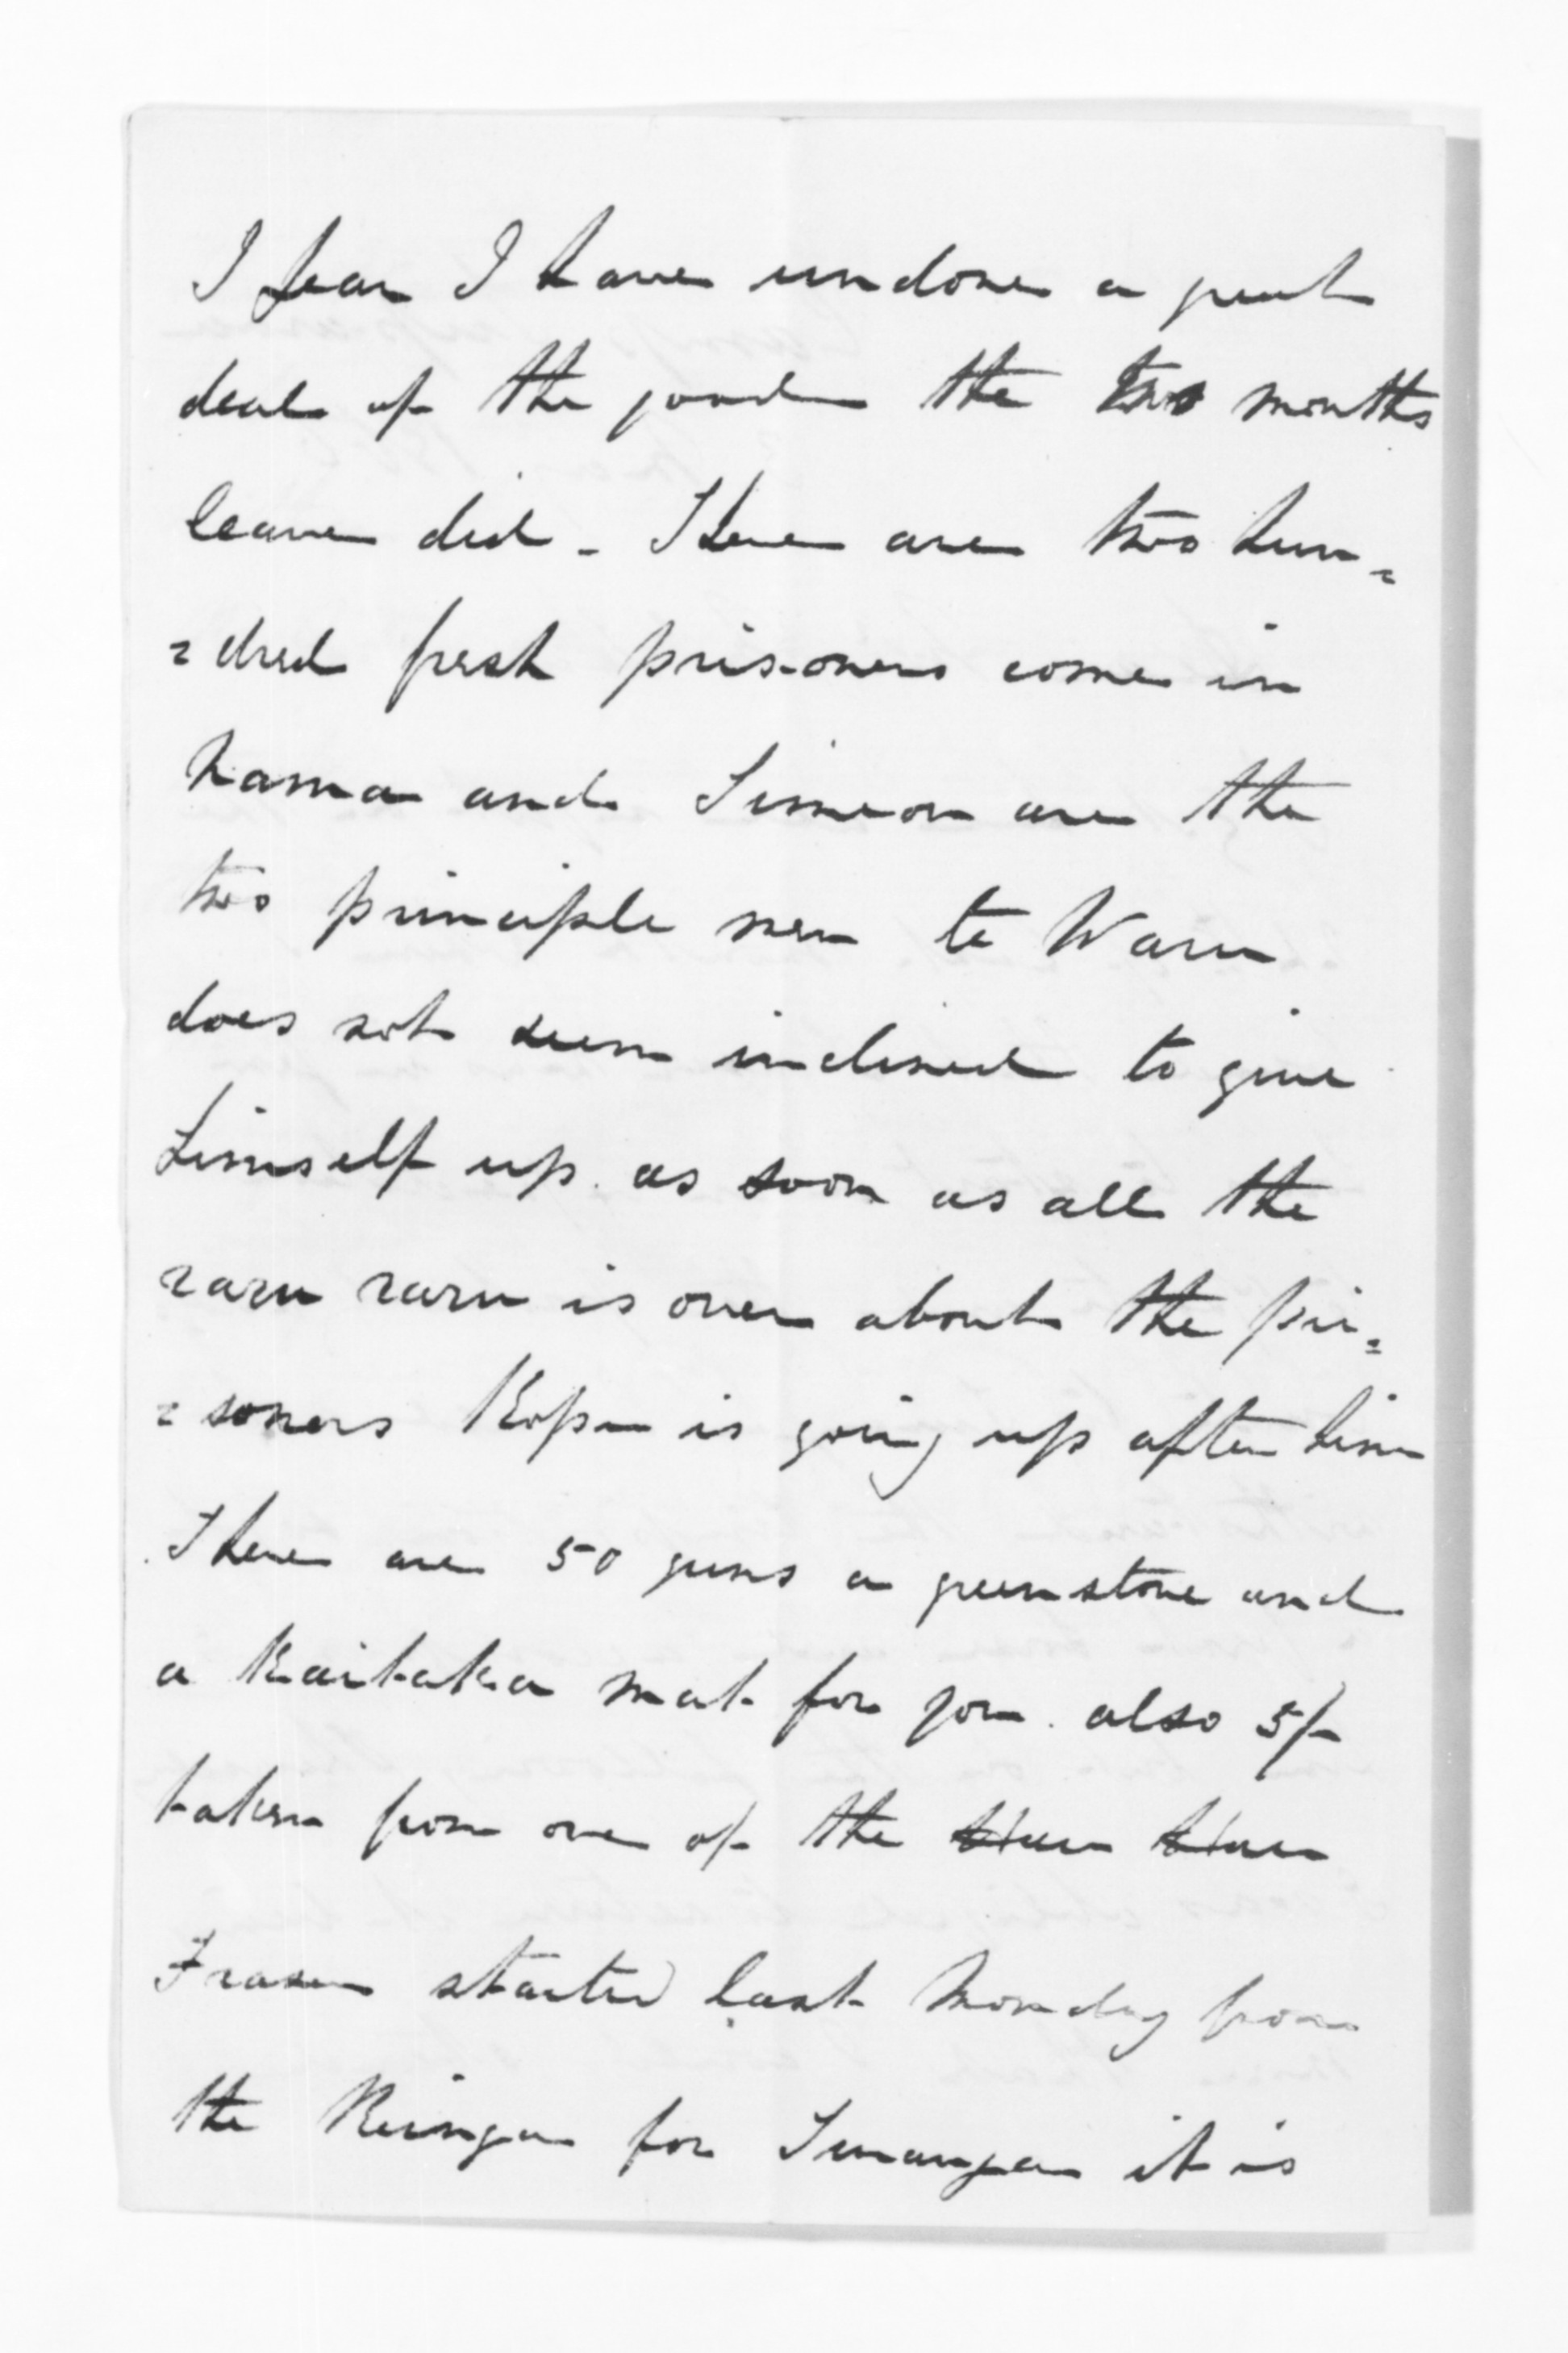 I fear I have undone a great
deal of the good the two months
leave did - There are two hun=
=dred fresh prisoners come in
Nama and Simeon are the
two principle men te Waru
does not seem inclined to give
himself up. as soon as all the
raru raru is over about the pri=
=soners Kopu is going up after him
There are 50 guns a greenstone and
a Kaitaka mat for you. also 5/-
taken from one of the Hau Haus
Fraser started last Monday from
the Reinga for Turanga it is